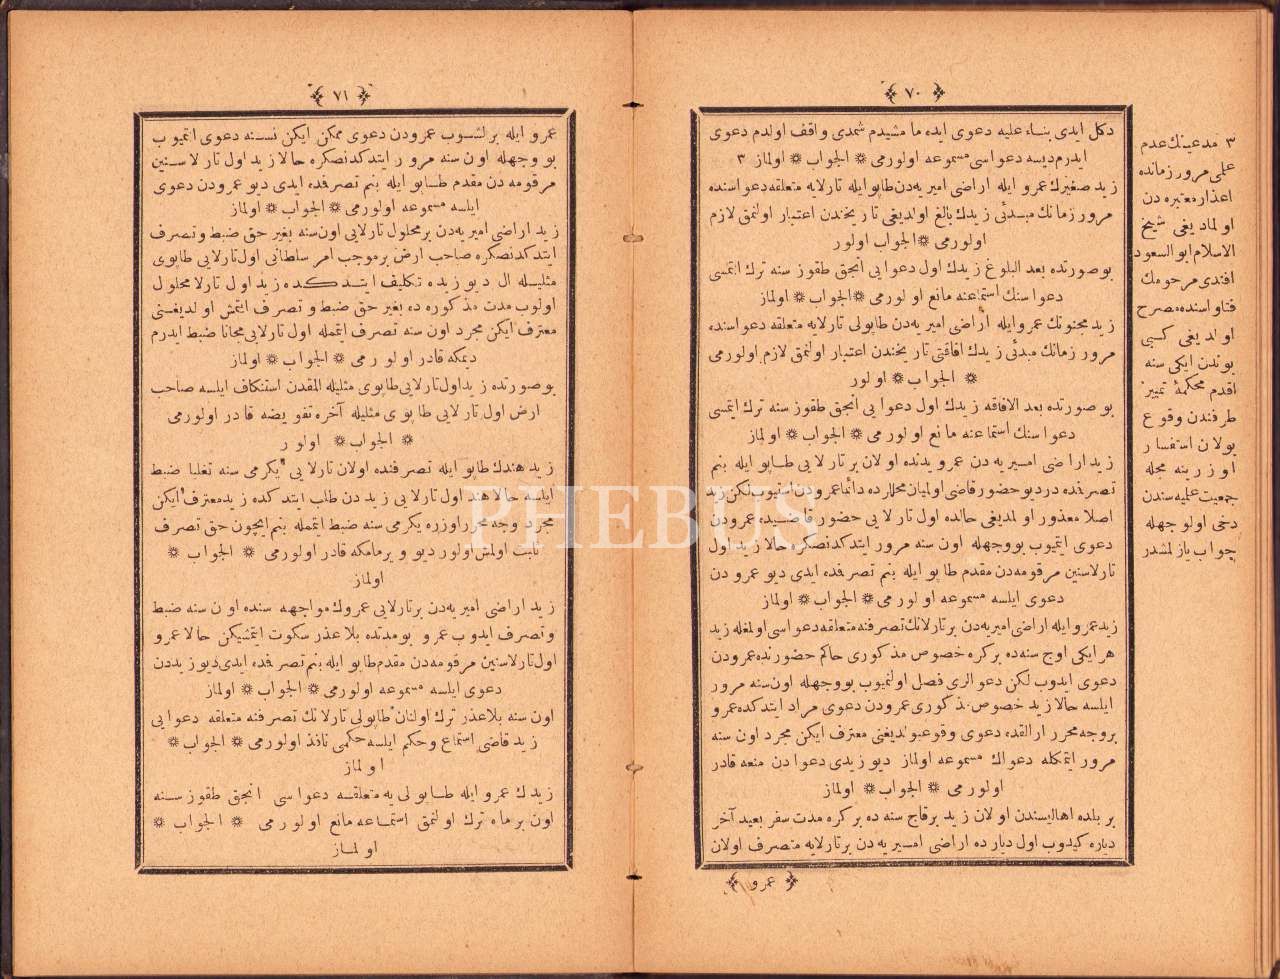 ٧٠
دكل ايدى بناء عليه دعوى ايده مامشيدم شمدى واقف اولدم دعوى
ايدرم ديسه دعواسى مسموعه اولورمى * الجواب * اولماز ٣
زيد صغيرك عمرو ايله اراضى اميريه‌دن طاپو ايله تارلايه متعلقه دعواسنده
مرور زمانك مبدئى زيدك بالغ اولديغى تاريخندن اعتبار اولنمق لازم
اولورمى * الجواب اولور
بو صورتده بعد البلوغ زيدك اول دعوايى انجق طقوز سنه ترك ايتمسى
دعواسنك استماعنه مانع اولورمى * الجواب * اولماز
زيد مجنونك عمرو ايله اراضى اميريه‌دن طاپولى تارلايه متعلقه دعواسنده
مرور زمانك مبدئى زيدك افاقتى تاريخندن اعتبار اولنمق لازم اولورمى
* الجواب * اولور
بو صورتده بعد الافاقه زيدك اول دعوايى انجق طقوز سنه ترك ايتمسى
دعواسنك استماعنه مانع اولورمى * الجواب * اولماز
زيد اراضى اميريه دن عمرو يدنده اولان بر تارلايى طاپو ايله بنم
تصرفمده دردیو حضور قاضى اولميان محللرده دائما عمرودن استيوب لكن زيد
اصلا معذور اولمديغى حالده اول تارلايى حضور قاضيده عمرودن
دعوى ايتميوب بو وجهله اون سنه مرور ايتدكدنصكره حالا زيد اول
تارلاسنين مرقومه‌دن مقدم طاپو ايله بنم تصرفمده ايدى ديو عمرودن
دعوى ايلسه مسموعه اولورمى * الجواب * اولماز
زيد عمرو ايله اراضى اميريه‌دن بر تارلانك تصرفنه متعلقه دعواسى اولمغله زيد
هر ايكى اوج سنه‌ده بر كره خصوص مذكورى حاكم حضورنده عمرودن
دعوى ايدوب لكن دعوالرى فصل اولنميوب بو وجهله اون سنه مرور
ايلسه حالا زيد خصوص مذكورى عمرودن دعوى مراد ايتدكده عمرو
بر وجه محرر ارالقده دعوى وقوعبولديغنى معترف ايكن مجرد اون سنه
مرور ايتمكله دعواك مسموعه اولماز ديو زيدى دعوادن منعه قادر
اولورمى * الجواب * اولماز
بر بلده اهاليسندن اولان زيد بر قاچ سنه ده بر كره مدت سفر بعيد آخر
دياره كيدوب اول ديارده اراضى اميريه دن بر تارلايه متصرف اولان
عمرو
٣ مدعينك عدم
على مرور زمانده
اعذار معتبره دن
اولماديغى شيخ
الاسلام ابو السعود
افندى مرحومك
فتاواسنده مصرح
اولديغى كبى
بوندن ايكى سنه
اقدم محكمۀ تمييز
طرفندن وقوع
بولان استفسار
اوزرينه مجله
جمعيت عليه سندن
دخى اولوجهله
جواب يازلمشدر
٧١
عمرو ايله برلشوب عمرودن دعوى ممكن ايكن نسنه دعوى ايتميوب
بو وجهله اون سنه مرور ايتدكدنصكره حالا زيد اول تارلا سنين
مرقومه دن مقدم طاپو ايله بنم تصرفمده ايدى ديو عمرودن دعوى
ايلسه مسموعه اولورمى * الجواب * اولماز
زيد اراضى اميريه‌دن بر محلول تارلايى اون سنه بغير حق ضبط وتصرف
ايتدكدنصكره صاحب ارض بر موجب امر سلطانى اول تارلايى طاپوى
مثليله ال ديو زيده تكليف ايتدكده زيد اول تارلا محلول
اولوب مدت مذكوره ده بغير حق ضبط وتصرف ايتمش اولديغنى
معترف ايكن مجرد اون سنه تصرف ايتمله اول تارلايى مجانا ضبط ايدرم
ديمكه قادر اولورمى * الجواب * اولماز
بو صورتده زيد اول تارلايى طاپوى مثليله القدن استنكاف ايلسه صاحب
ارض اول تارلايى طاپوى مثليله آخره تفويضه قادر اولورمى
* الجواب * اولور
زيد هندك طاپو ايله تصرفنده اولان تارلايى يكرمى سنه تغلبا ضبط
ايلسه حالا هند اول تارلايى زيد دن طلب ايتدكده زيد معترف ايكن
مجرد وجه محرر اوزره يكرمى سنه ضبط ايتمله بنم ايچون حق تصرف
ثابت اولمش اولور ديو ويرمامكه قادر اولورمى * الجواب *
اولماز
زيد اراضى اميريه‌دن بر تارلايى عمروك مواجهه سنده اون سنه ضبط
وتصرف ايدوب عمرو بو مدتده بلا عذر سكوت ايتمشيكن حالا عمرو
اول تارلا سنين مرقومه‌دن مقدم طاپو ايله بنم تصرفمده ايدى ديو زيددن
دعوى ايلسه مسموعه اولورمى * الجواب * اولماز
اون سنه بلا عذر ترك اولنان طاپولى تارلانك تصرفنه متعلقه دعوايى
زيد قاضى استماع وحكم ايلسه حكمى نافذ اولورمى * الجواب *
اولماز
زيدك عمرو ايله طاپولى يه متعلقه دعواسى انجق طقوز سنه
اون بر ماه ترك اولنمق استماعه مانع اولورمى * الجواب *
اولماز
PHEBUS